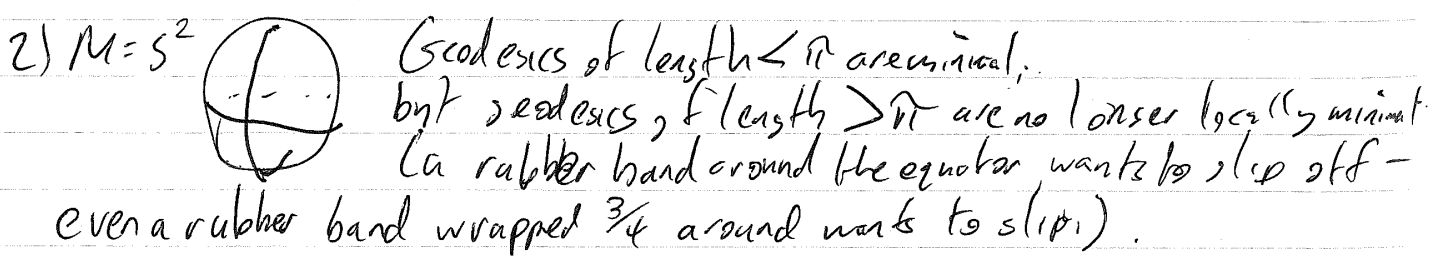 2) M = S² Geodesics of length < π are minimal,
but geodesics of length > π are no longer locally minimal
(a rubber band around the equator wants to slip off –
even a rubber band wrapped 3/4 around wants to slip.).